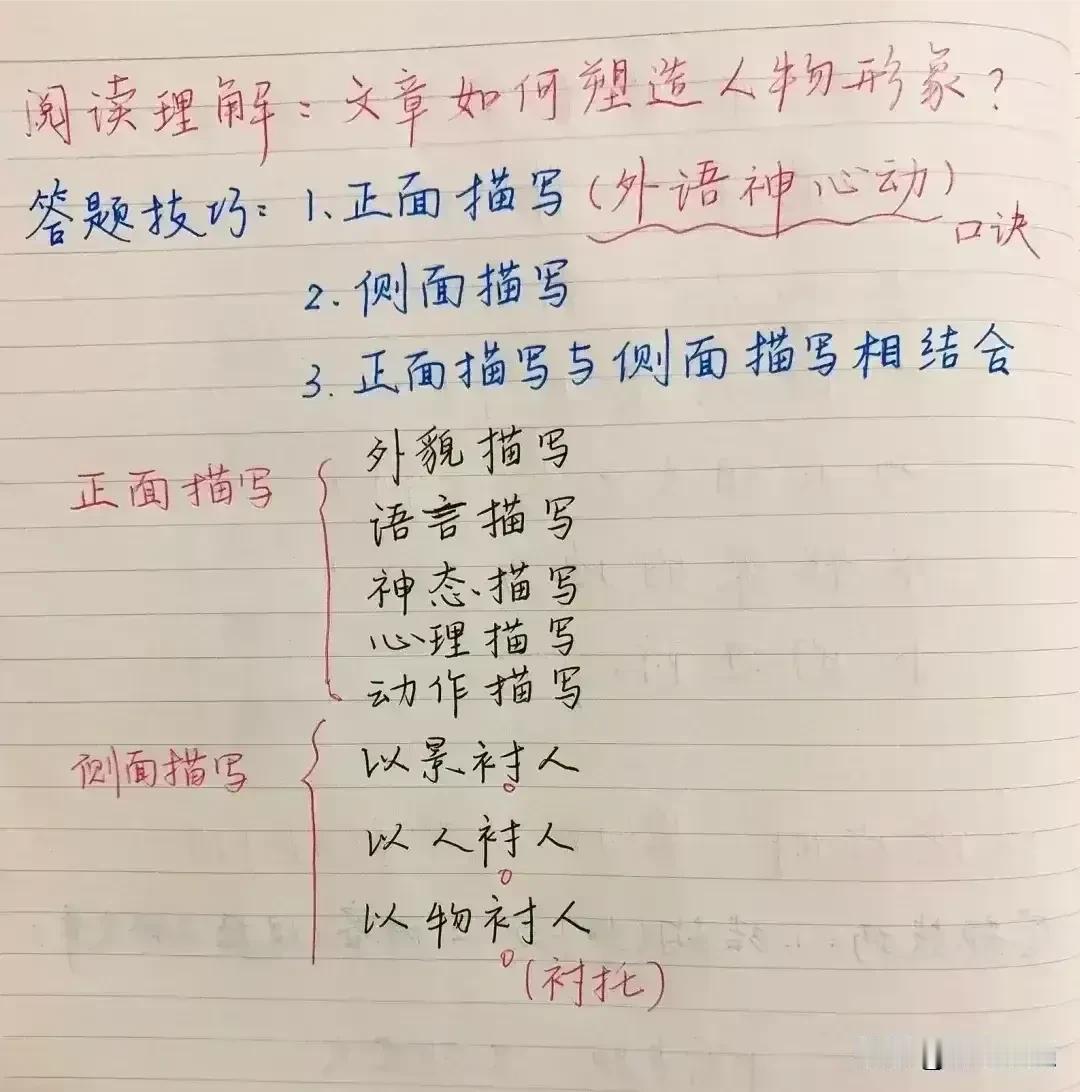 阅读理解：文章如何塑造人物形象？
答题技巧：1.正面描写（外语神心动）口诀
2.侧面描写
3.正面描写与侧面描写相结合
正面描写
外貌描写
语言描写
神态描写
心理描写
动作描写
侧面描写
以景衬人
以人衬人
以物衬人
（衬托）